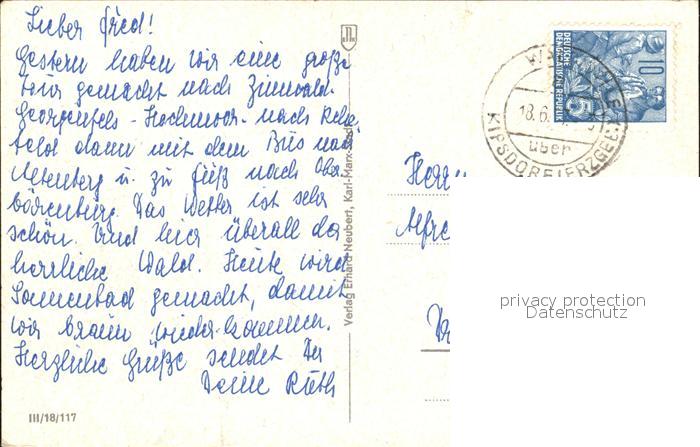 Lieber Fred!
Gestern haben wir eine große
Tour gemacht nach Zinnwald-
Georgenfeld - Hochmoor - nach Reha
felde dann mit dem Bus nach
Altenberg u. zu Fuß nach Ober
bärenburg. Das Wetter ist sehr
schön. Und hier überall der
herrliche Wald. Heute wird
Sonnenbad gemacht, damit
wir braun wieder kommen.
Herzliche Grüße sendet Dir
Deine Ruth
III/18/117
Verlag Erhard Neubert, Karl-Marx-Stadt
DEUTSCHE
DEMOKRATISCHE REPUBLIK
10
18.6.
über
KIPSDORF (ERZGEB.)
Herrn
Alfre
privacy protection
Datenschutz